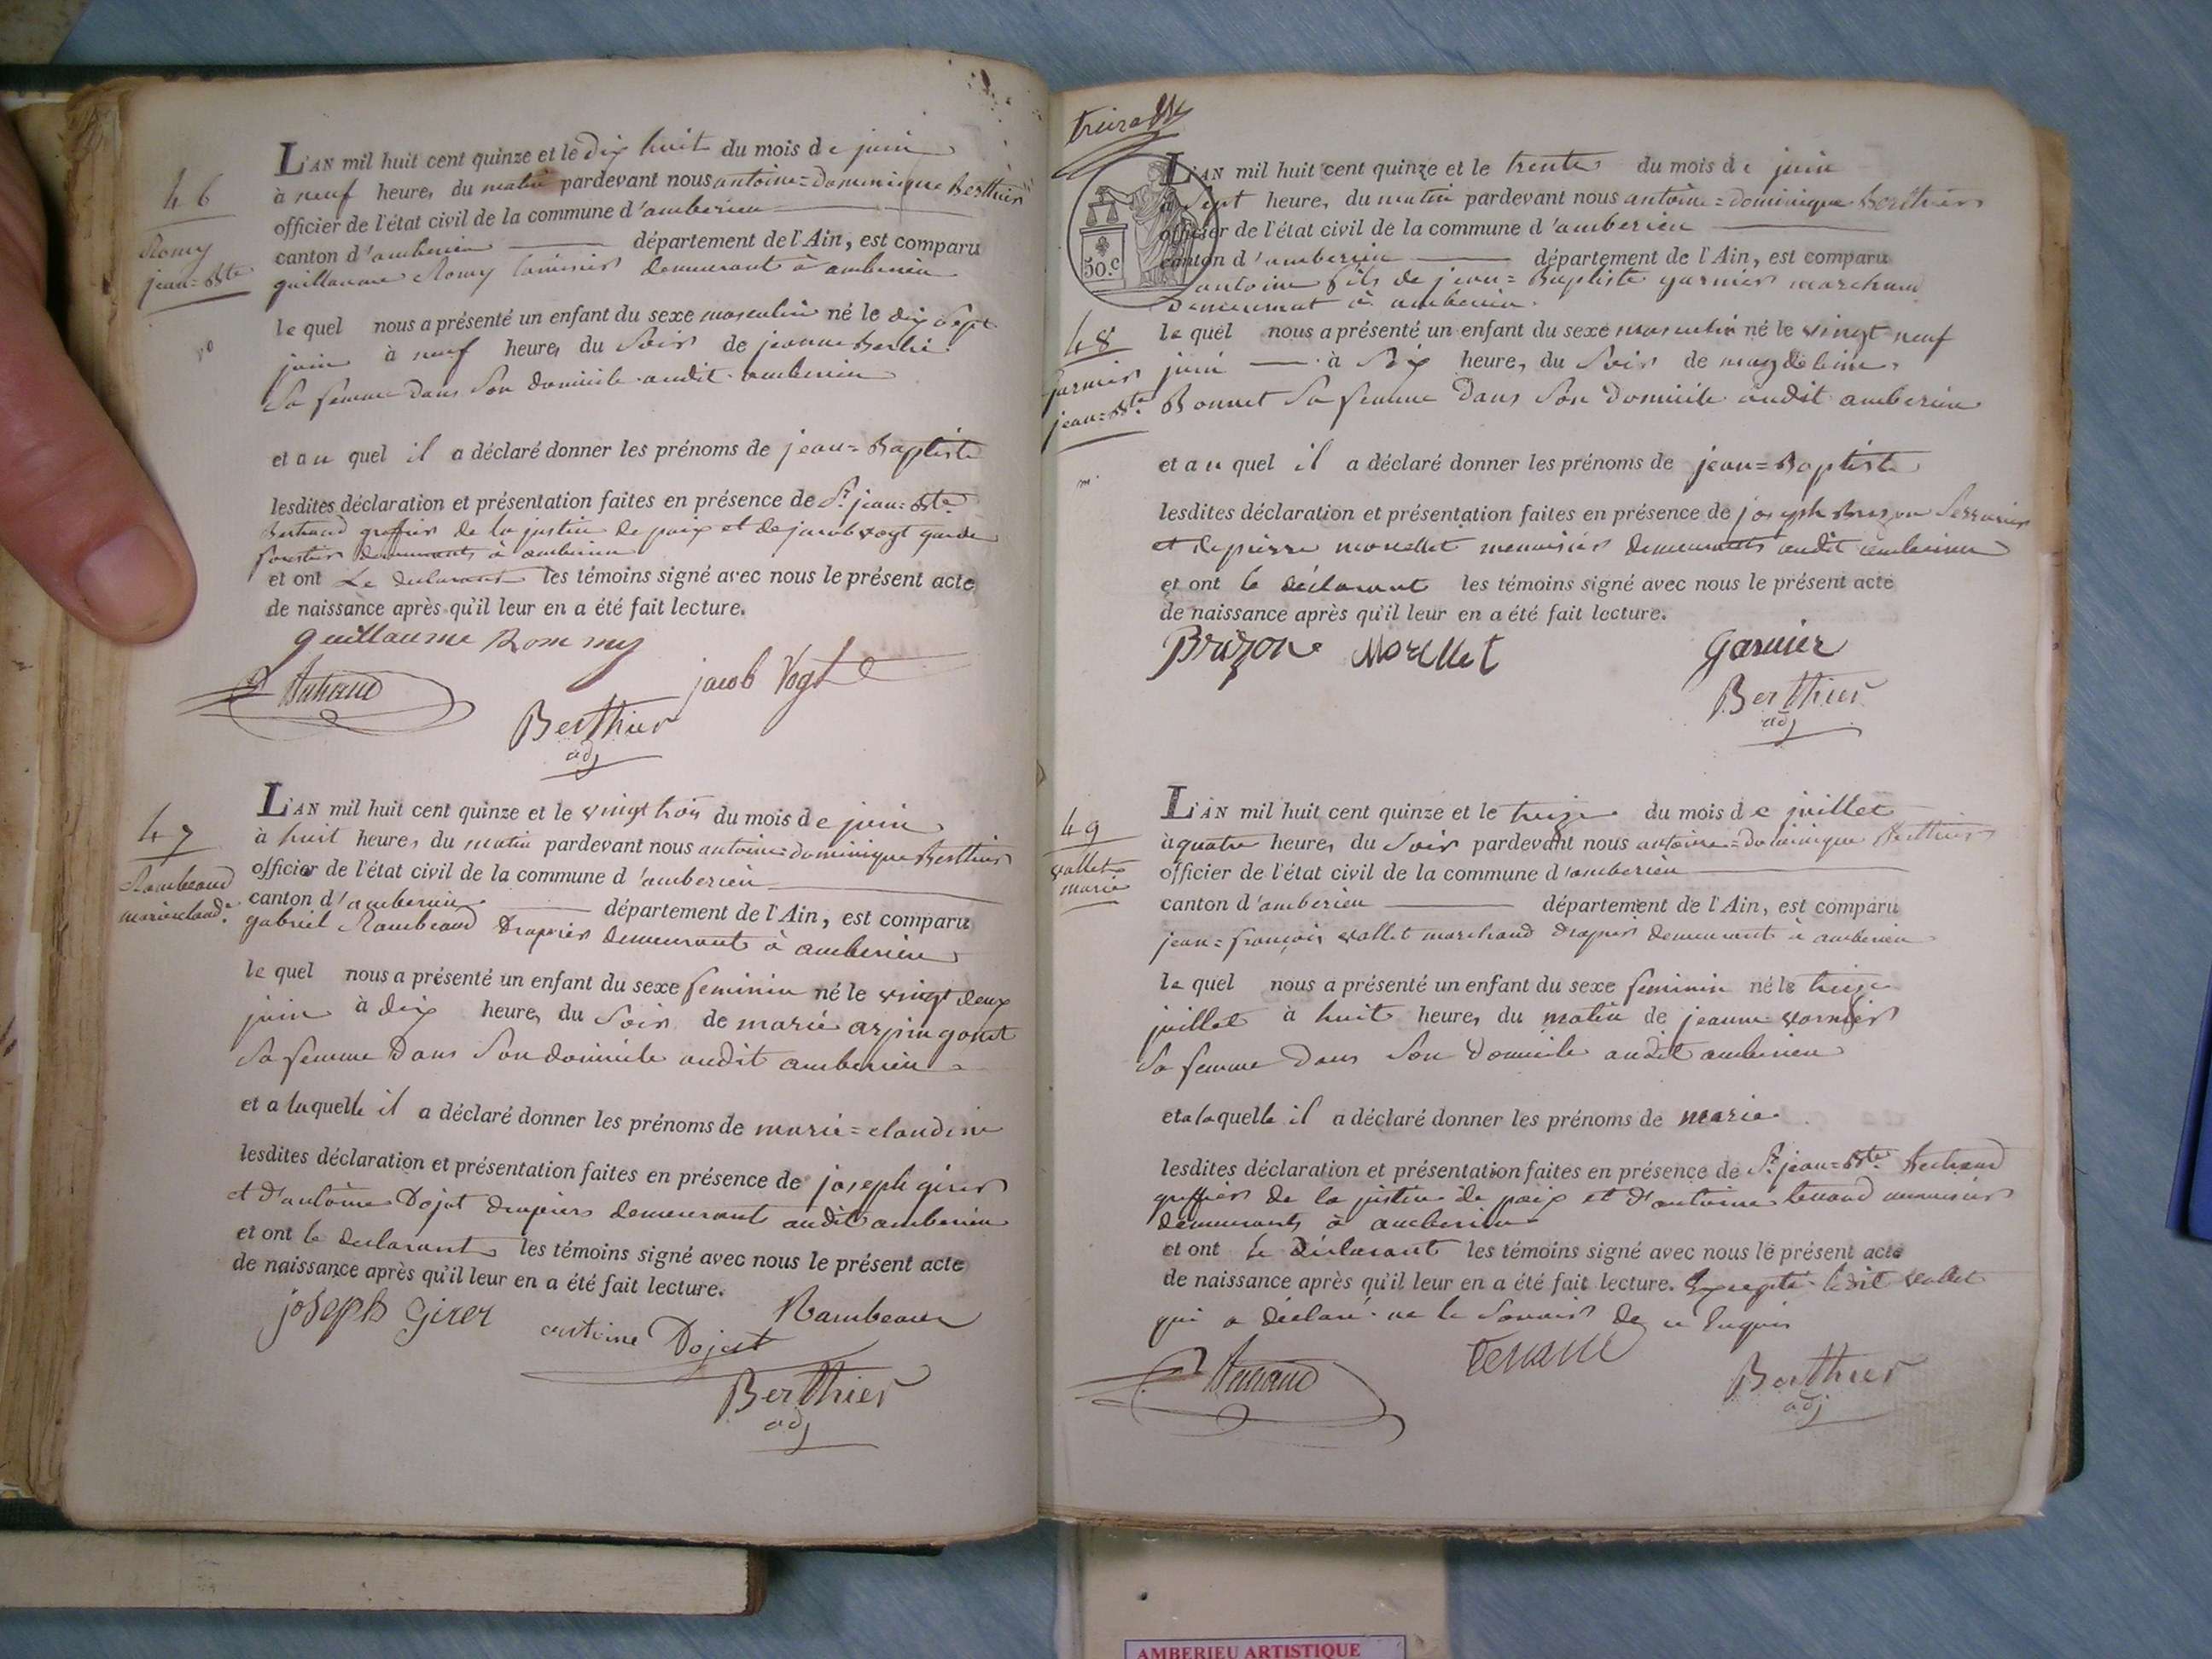 46
Romy
jean=Bte
L'AN mil huit cent quinze et le dix huit du mois de juin
à neuf heures du matin pardevant nous antoine=dominique Berthier
officier de l'état civil de la commune d'amberieu
canton d'amberieu département de l'Ain, est comparu
guillaume Romy demeurant à amberieu
le quel nous a présenté un enfant du sexe masculin né le dix sept
juin à neuf heures du soir de jeanne
sa femme dans son domicile audit amberieu
et au quel il a déclaré donner les prénoms de jean=Baptiste
lesdites déclaration et présentation faites en présence de Sr. jean=Bte
Bertrand greffier de la justice de paix et de jacob vogt garde
forestier demeurants à amberieu
et ont le declarant les témoins signé avec nous le présent acte
de naissance après qu'il leur en a été fait lecture.
guillaume Rommy
jacob Vogt
Berthier
adj
47
Rambeaud
marie claude
L'AN mil huit cent quinze et le vingt trois du mois de juin
à huit heures du matin pardevant nous antoine=dominique Berthier
officier de l'état civil de la commune d'amberieu
canton d'amberieu département de l'Ain, est comparu
gabriel Rambeaud Drapier demeurant à amberieu
le quel nous a présenté un enfant du sexe feminin né le vingt deux
juin à dix heures du soir de marie arpin gonet
sa femme dans son domicile audit amberieu
et a laquelle il a déclaré donner les prénoms de marie=claudine
lesdites déclaration et présentation faites en présence de joseph girer
et d'antoine Dojat drapiers demeurant audit amberieu
et ont le declarant les témoins signé avec nous le présent acte
de naissance après qu'il leur en a été fait lecture.
joseph Girer
antoine Dojat
Rambeau
Berthier
adj
50.c
48
Garnier
jean=Bte
L'AN mil huit cent quinze et le trente du mois de juin
à Sept heures du matin pardevant nous antoine=dominique Berthier
officier de l'état civil de la commune d'amberieu
canton d'amberieu département de l'Ain, est comparu
antoine fils de jean=Baptiste garnier marchand
Demeurant à amberieu
le quel nous a présenté un enfant du sexe masculin né le vingt=neuf
juin à Six heures du soir de magdeleine
Bonnet sa femme dans son domicile audit amberieu
et au quel il a déclaré donner les prénoms de jean=Baptiste
lesdites déclaration et présentation faites en présence de joseph Brizon Serrurier
et de pierre morellet menuisier demeurants audit amberieu
et ont le déclarant les témoins signé avec nous le présent acte
de naissance après qu'il leur en a été fait lecture.
Brizon
Morellet
Garnier
Berthier
adj
49
vallet
marie
L'AN mil huit cent quinze et le treize du mois de juillet
à quatre heures du Soir pardevant nous antoine=dominique Berthier
officier de l'état civil de la commune d'amberieu
canton d'amberieu département de l'Ain, est comparu
jean=françois vallet marchand drapier demeurant à amberieu
le quel nous a présenté un enfant du sexe feminin né le treize
juillet à huit heures du matin de jeanne vornier
sa femme dans son domicile audit amberieu
et a laquelle il a déclaré donner les prénoms de marie
lesdites déclaration et présentation faites en présence de Sr. jean=Bte Bertrand
greffier de la justice de paix et d'antoine tenand menuisier
demeurants à amberieu
et ont le déclarant les témoins signé avec nous le présent acte
de naissance après qu'il leur en a été fait lecture. Excepté ledit vallet
qui a déclaré ne le savoir de ce enquis
Berthier
adj
AMBERIEU ARTISTIQUE